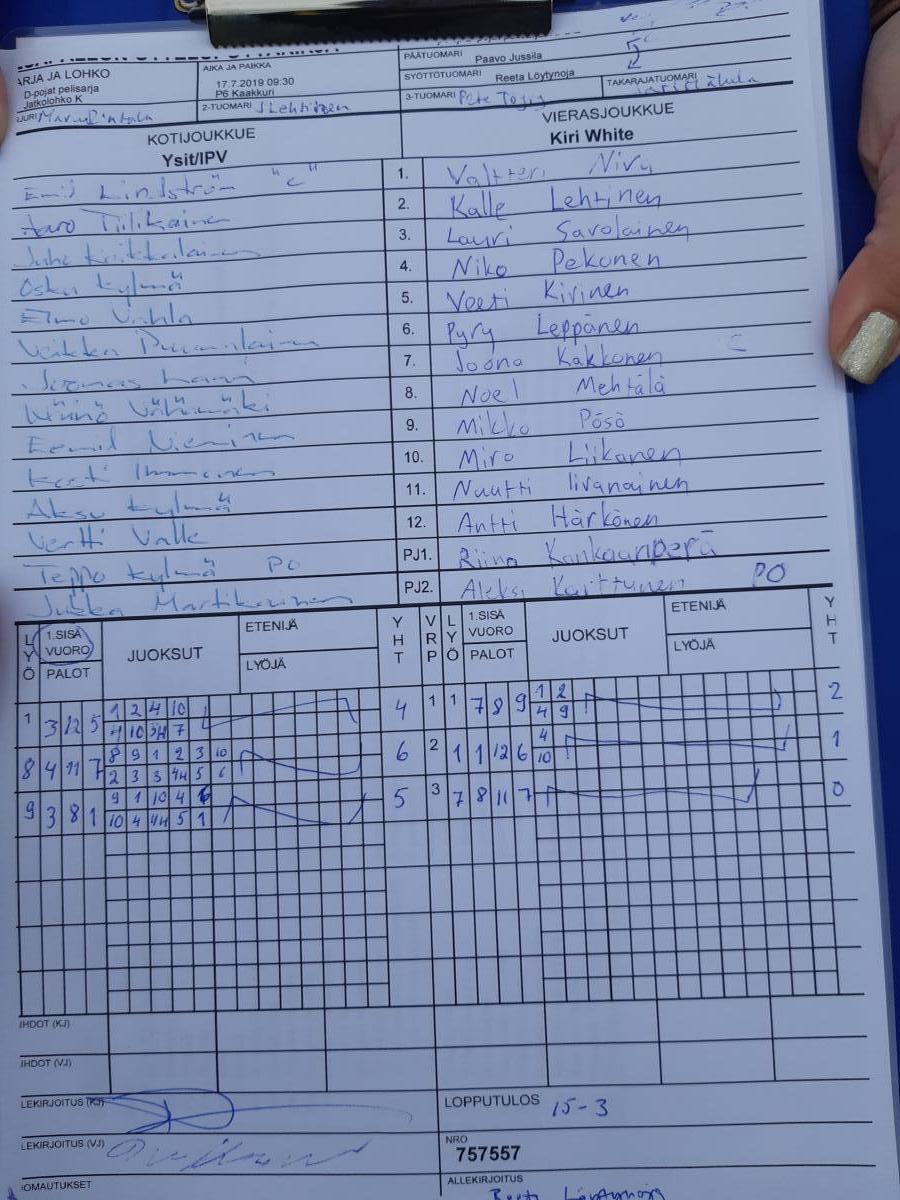 ARJA JA LOHKO
D-pojat pelisarja
Jatkolohko K
AIKA JA PAIKKA
17.7.2019 09:30
P6 Kaakkuri
2-TUOMARI J Lehtinen
PÄÄTUOMARI Paavo Jussila
SYÖTTÖTUOMARI Reeta Löytynoja
3-TUOMARI
TAKARAJATUOMARI
KOTIJOUKKUE
Ysit/IPV
VIERASJOUKKUE
Kiri White
Emil Lindström "C" 1. Valtteri Niva
Aaro Tiilikainen 2. Kalle Lehtinen
Juho 3. Lauri Savolainen
Osku Kylmä 4. Niko Pekonen
Elmo 5. Veeti Kirinen
Veikka 6. Pyry Leppänen
Joonas 7. Joona Kakkonen C
Väinö Vähämäki 8. Noel Mehtälä
Eemil Nieminen 9. Mikko Pösö
Immonen 10. Miro Liikanen
Aksu Kylmä 11. Nuutti Iivanainen
Vertti Valle 12. Antti Härkönen
Teppo Kylmä PO PJ1. Riina Kankaanperä
Jukka Martikainen PJ2. Aleksi Kurttunen PO
LYÖ 1.SISÄ VUORO PALOT JUOKSUT ETENIJÄ LYÖJÄ YHT VRP LYÖ 1.SISÄ VUORO PALOT JUOKSUT ETENIJÄ LYÖJÄ YHT
1 3 12 5 1 2 4 10 4 1 1 7 8 9 1 2 2
4 10 3H 7 4 9
8 4 11 7 8 9 1 2 3 10 6 2 1 1 12 6 4 1
2 3 3 4H 5 6 10
9 3 8 1 9 1 10 4 6 5 3 7 8 11 7 0
10 4 4H 5 1
IHDOT (KJ)
IHDOT (VJ)
LEKIRJOITUS (KJ)
LEKIRJOITUS (VJ)
LOPPUTULOS 15-3
NRO
757557
OMAUTUKSET
ALLEKIRJOITUS
Reeta Löytynoja